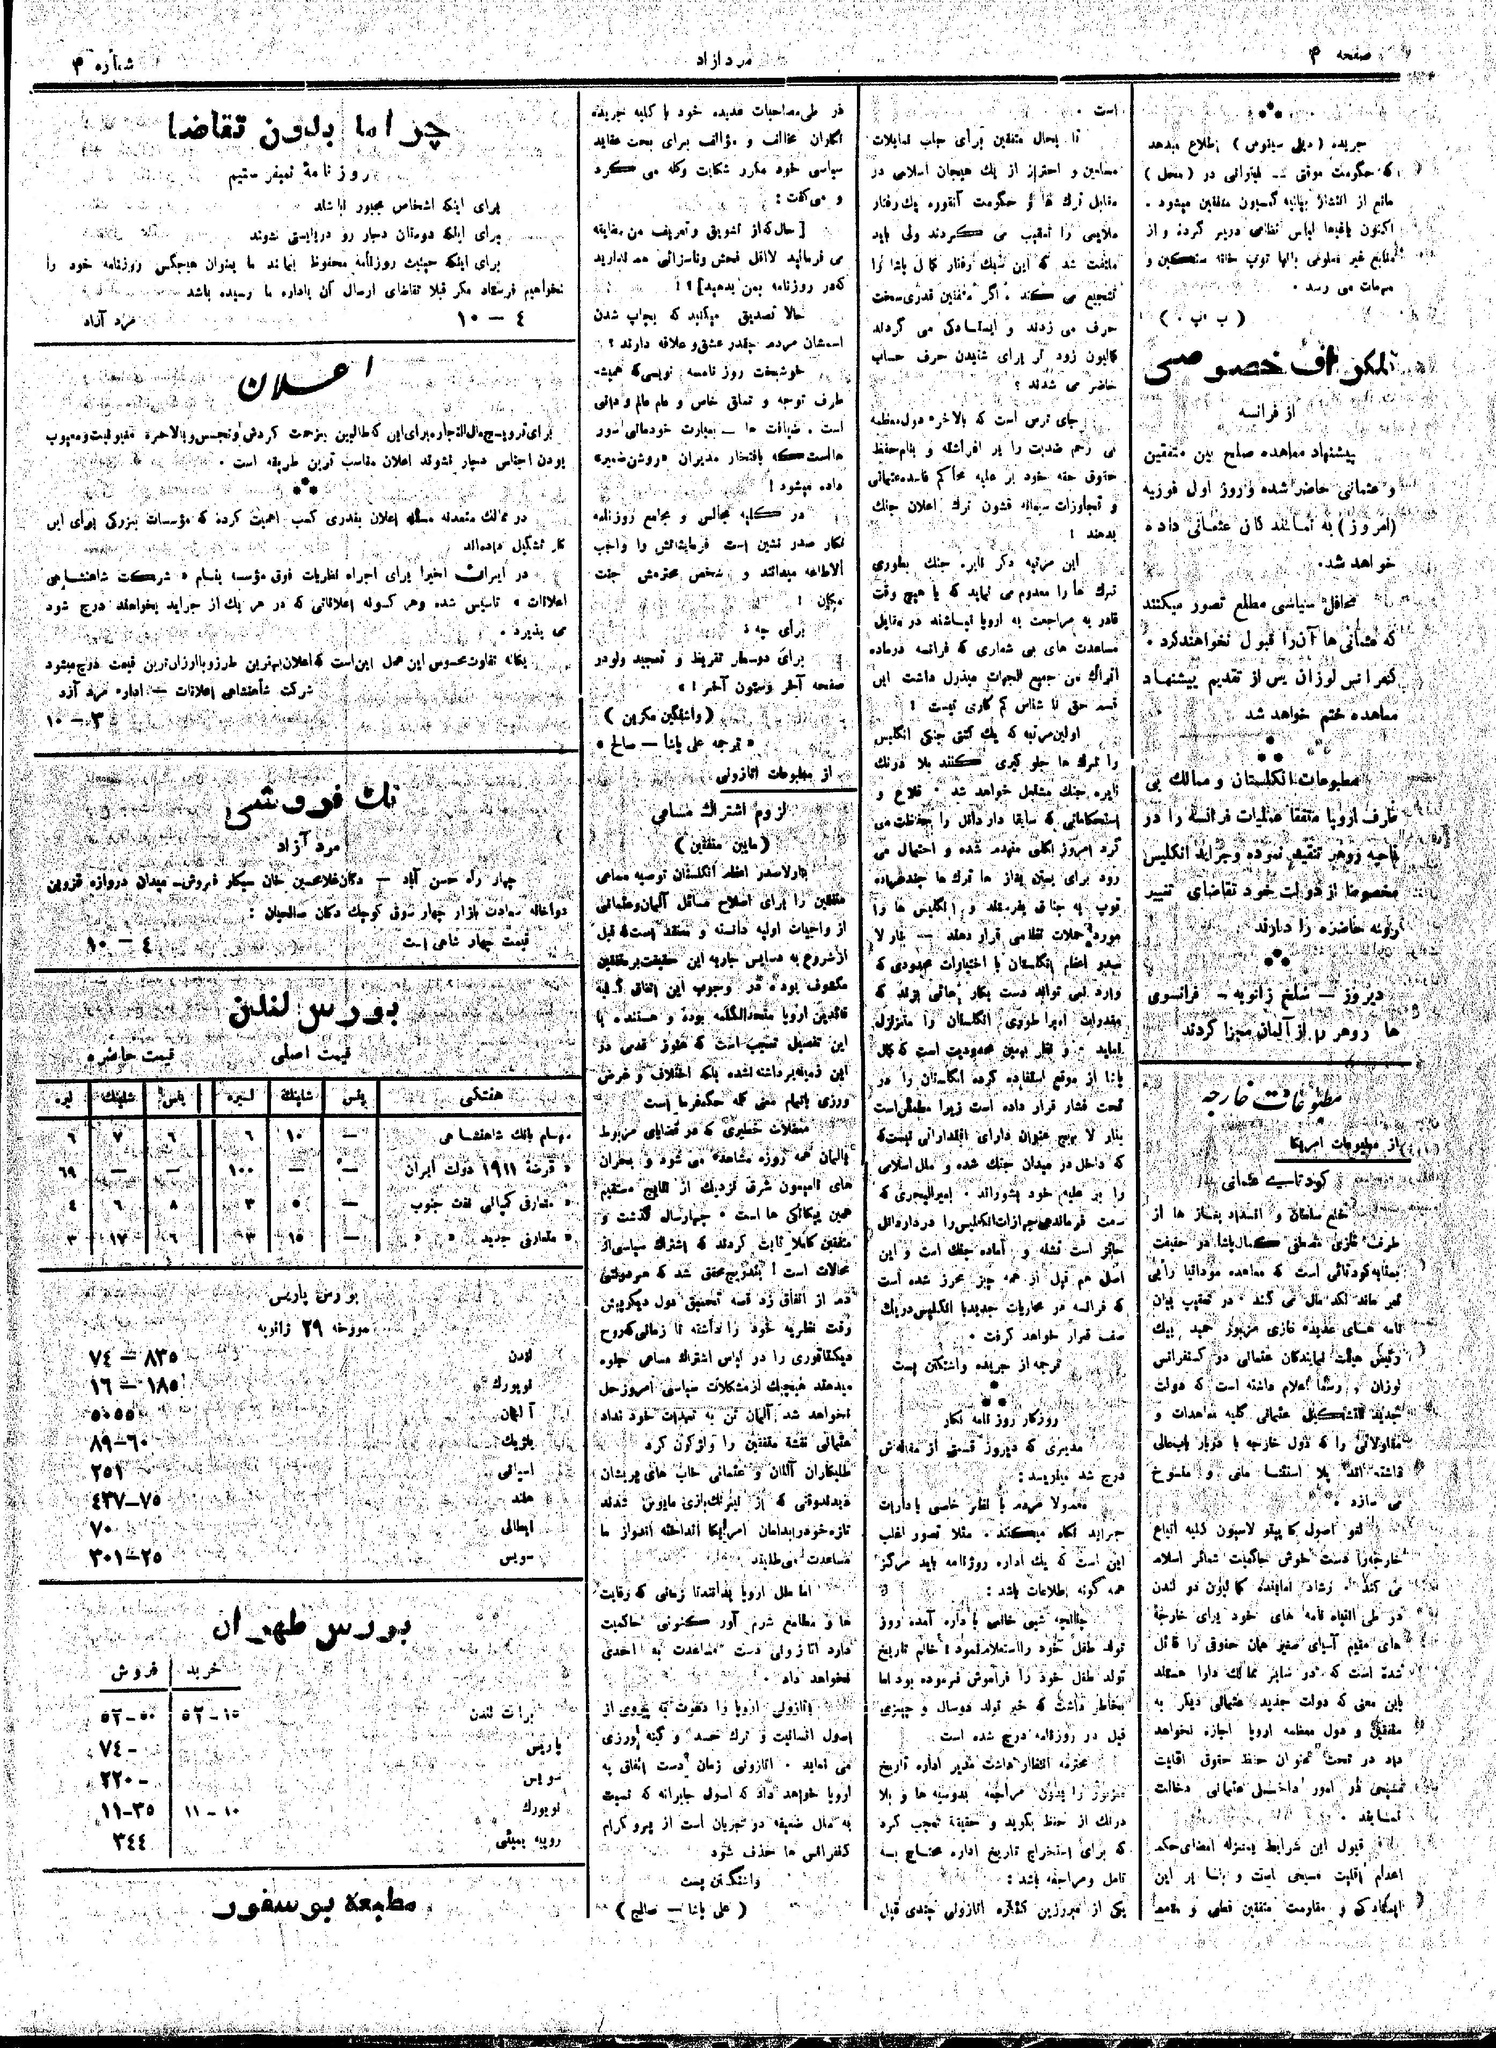 صفحه ۴
مرد ازاد
شماره ۳
جریده (دیلی سینوس) اطلاع میدهد
که حکومت موقتی لیتوانی در (ممل)
مانع از انتشار بیانیه کمسیون متفقین میشود .
اکنون یاغیها لباس نظامی دربر کرده و از
منابع غیر معلومی بآنها توپ خانه سنگین و
مهمات می رسد .
تلگراف خصوصی
از فرانسه
پیشنهاد معاهده صلح بین متفقین
و عثمانی حاضر شده و روز اول فوریه
(امروز) به نمایندگان عثمانی داده
خواهد شد.
محافل سیاسی مطلع تصور میکنند
که عثمانی ها آن را قبول نخواهند کرد .
کنفرانس لوزان پس از تقدیم پیشنهاد
معاهده ختم خواهد شد
مطبوعات انگلستان و ممالک بی
طرف اروپا متفقا عملیات فرانسه را در
ناحیه روهر تنقید نموده و جراید انگلیس
مخصوصا از دولت خود تقاضای تغییر
رویه حاضره را دارند
دیروز — سلخ ژانویه - فرانسوی
ها روهر را از آلمان مجزا کردند
مطبوعات خارجه
از مطبوعات امریکا
کودتاسیے عثمانی
خلع سلطان و انسداد بغاز ها از
طرف غازی مصطفی کمال پاشا در حقیقت
بمثابه کودتائی است که معاهده مودانیا را بی
ثمر ماند لکد مال می کند . در تعقیب بیان
نامه های عدیده غازی مزبور حمید بیک
رئیس هیئت نمایندگان عثمانی در کنفرانس
لوزان رسما اعلام داشته است که دولت
جدید التشکیل عثمانی کلیه معاهدات و
مقاولاتی را که دول خارجه با دربار باب عالی
داشته اند بلا استثنا ملغی و منسوخ
می سازد .
لغو اصول کاپیتولاسیون کلیه اتباع
خارجه را دست خوش حاکمیت شعائر اسلام
می کند . رشاد نماینده کمالیون در لندن
در طی انتباه نامه های خود برای خارجهٔ
های مقیم آسیای صغیر همان حقوقی را قائل
شده است که در سایر ممالک دارا هستند
باین معنی که دولت جدید عثمانی دیگر به
متفقین و دول معظمه اروپا اجازه نخواهد
داد در تحت عنوان حفظ حقوق اقلیت
مسیحی در امور داخلی عثمانی دخالت
نمایند .
قبول این شرایط بمنزله امضای حکم
اعدام اقلیت مسیحی است و بنا بر این
ایستادگی و مقاومت متفقین قطعی و مصمم
است .
تا بحال متفقین برای جلب تمایلات
مسلمین و احتراز از یک هیجان اسلامی در
مقابل ترک ها و حکومت آنقوره یک رفتار
ملایمی را تعقیب می کردند ولی باید
ملتفت شد که این سبک رفتار کمال پاشا را
تشجیع می کند . اگر متفقین قدری سخت
حرف می زدند و ایستادگی می کردند
کمالیون زود تر برای شنیدن حرف حساب
حاضر می شدند ؟
جای ترس است که بالاخره دول معظمه
بی رحم ضدیت را بر افراشته و بنام حفظ
حقوق حقه خود بر علیه محاکم فاسده عثمانی
و تجاوزات سبعانه قشون ترک اعلان جنگ
بدهند !
این مرتبه دگر نایره جنگ بطوری
ترک ها را معدوم می نماید که با هیچ وقت
قادر به مراجعت به اروپا نباشند در مقابل
مساعدت های بی شماری که فرانسه در ماده
اتراک من جمیع الجهات مبذول داشت این
قسم حق نا شناسی کم کاری نیست !
اولین مرتبه که یک کشتی جنگی انگلیس
را ترک ها جلو گیری کنند بلا درنک
نایره جنگ مشتعل خواهد شد . قلاع و
استحکاماتی که سابقا داردانل را حفاظت می
کرد امروز بکلی منهدم شده و احتمال می
رود برای بستن بغاز ها ترک ها چند عراده
توپ به چناق بفرستند و انگلیس ها را
مورد حملات نظامی قرار دهند — بنار لا
صدر اعظم انگلستان با اختیارات محدودی که
دارد نمی تواند دست بکار هائی بزند که
مقدرات امپراطوری انگلستان را متزلزل
نماید . و نظر بهمین محدودیت است که کمال
پاشا از موقع استفاده کرده انگلستان را در
تحت فشار قرار داده است زیرا مطمئن است
بنار لا بهیچ عنوان دارای اقتداراتی نیست که
که داخل در میدان جنگ شده و ملل اسلامی
را بر علیه خود بشوراند . امیرالبحری که
سمت فرماندهی جهازات انگلیس را در داردانل
حائز است تشنه و آماده جنگ است و این
اصل هم قبل از همه چیز محرز شده است
که فرانسه در محاربات جدید با انگلیس در یک
صف قرار خواهد گرفت .
ترجمه از جریده واشنگتن پست
روزگار روزنامه نگار
مدیری که دیروز قسمتی از مقاله اش
درج شد مینویسد :
معمولا مردم با نظر خاصی بادارات
جراید نگاه میکنند . مثلا تصور اغلب
این است که یک اداره روزنامه باید مرکز
همه گونه اطلاعات باشد :
چنانچه شبی خانمی با داره آمده روز
تولد طفل خود را استعلام نمود ؛ خانم تاریخ
تولد طفل خود را فراموش فرموده بود اما
بخاطر داشت که خبر تولد دو سال و چیزی
قبل در روزنامه درج شده است
محترمه انتظار داشت مدیر اداره تاریخ
مزبور را بدون مراجعه بدوسیه ها و بلا
درنک از حفظ بگوید و حقیقة تعجب کرد
که برای استخراج تاریخ اداره محتاج بـه
تامل و مراجعه باشد :
یکی از مبرزین کنگره اتازونی چندی قبل
در طی مصاحبات عدیده خود با کلیه جریده
نگاران مخالف و مؤالف برای بحث عقاید
سیاسی خود مکرر شکایت و گله می کرد
و می گفت :
[حال که از تشویق و تعریف من مضایقه
می فرمائید لااقل فحش و ناسزائی هم ندارید
که در روزنامه بمن بدهید] ؟ !
حالا تصدیق میکنید که بچاپ شدن
اسمشان مردم چقدر عشق و علاقه دارند ؟
خوشبخت روز نامـه نویسی که همیشه
طرف توجه و تملق خاص و عام عالم و دانی
است . ضیافت ها — بعبارت خودمانی سور
هااست که بافتخار مدیران «روشن ضمیر»
داده میشود !
در کلیه مجالس و مجامع روزنامه
نگار صدر نشین است فرمایشاتش را واجب
الاطاعه میدانند و شخص محترمش جنت
مکان !
برای چه ؟
برای دو سطر تقریظ و تمجید ولو در
صفحه آخر و ستون آخر ! »
(واشنگتن مگزین)
« ترجمه علی پاشا — صالح »
از مطبوعات اتازونی
لزوم اشتراک مساعی
(مابین متفقین)
بنار لا صدر اعظم انگلستان توصیه مساعی
متفقین را برای اصلاح مسائل آلمان و عثمانی
از واجبات اولیه دانسته و معتقد است که قبل
از شروع به دسایس جاریه این حقیقت بر متفقین
مکشوف بوده در وجوب این اتفاق کلیه
قائدین اروپا متحد الکلمه بوده و هستند با
این تفصیل تعجب است که هنوز قدمی در
این زمینه برداشته نشده بلکه اختلاف و غرض
ورزی بتمام معنی کلمه حکمفرما است
معضلات خطیری که در قضایای مربوط
بآلمان همه روزه مشاهده می شود و بحران
های نامیمون شرق نزدیک از نتایج مستقیم
همین بیگانگی ها است . چهار سال گذشت و
متفقین کاملا ثابت کردند که اشتراک سیاسی از
محالات است ! بتدریج محقق شد که هر دولتی
دم از اتفاق زد قصد تحمیق دول دیگر پیش
رفت نظریه خود را داشته تا زمانی که روح
دیکتاتوری را در لباس اشتراک مساعی جلوه
میدهند هیچیک از مشکلات سیاسی امروز حل
نخواهد شد آلمان تن به تعهدات خود نداد
عثمانی نقشه متفقین را واژگون کرد
طلبکاران آلمان و عثمانی خاب های پریشان
دیدند وقتی که از نیرنگ بازی مایوس شدند
تازه خود را بدامان امریکا انداخته از ما
مساعدت می طلبند
اما ملل اروپا بدانند تا زمانی که رقابت
ها و مطامع شرم آور کنونی حاکمیت
دارد اتازونی دست مساعدت به احدی
نخواهد داد .
اتازونی اروپا را دعوت به پیروی از
اصول انسانیت و ترک حسد و کینه ورزی
می نماید . اتازونی زمان دست اتفاق به
اروپا خواهد داد که اصول جابرانه که نسبت
به ملل ضعیفه در جریان است از پروگرام
کنفرانس ها حذف شود
واشنگتن پست
(علی پاشا — صالح)
چرا ما بدون تقاضا
روزنامهٔ نمیفرستیم
برای اینکه اشخاص مجبور نباشند
برای اینکه دوستان دچار رو دربایستی نشوند
برای اینکه حیثیت روزنامه محفوظ بماند ما بعنوان هیچکس روزنامه خود را
نخواهیم فرستاد مگر قبلا تقاضای ارسال آن باداره ما رسیده باشد
۴ — ۱۰ مرد آزاد
اعلان
برای ترویج مال التجاره برای این که طالبین بزحمت گردش و تجسس و بالاخره مغبونیت و معیوب
بودن اجناس دچار نشوند اعلان مناسب ترین طریقه است .
در ممالک متمدنه مسئله اعلان بقدری کسب اهمیت کرده که مؤسسات بزرگی برای این
کار تشکیل داده اند
در ایران اخیرا برای اجراء نظریات فوق مؤسسه بنام « شرکت شاهنشاهی
اعلانات » تاسیس شده و هر گونه اعلاناتی که در هر یک از جراید بخواهند درج شود
می پذیرد .
یگانه تفاوت محسوس این عمل این است که اعلان بهترین طرز و با ارزان ترین قیمت درج میشود
شرکت شاهنشاهی اعلانات — اداره مرد آزد
۳ — ۱۰
تک فروشی
مرد آزاد
چهار راه حسن آباد — دکان غلامحسین خان سیگار فروش — میدان دروازه قزوین
دواخانه سعادت بازار چهار سوق کوچک دکان صالحیان :
قیمت چهار شاهی است ۴ — ۱۰
بورس لندن
قیمت اصلی قیمت حاضره
هفتگی پنس شلینگ لیره پنس شلینگ لیره
سهام بانک شاهنشاهی — ۱۰ ۶ ۶ ۷ ۶
« قرضهٔ ۱۹۱۱ دولت ایران — — ۱۰۰ — — ۶۹
« متعارفی کمپانی نفت جنوب — ۵ ۳ ۸ ۶ ۴
« متعارفی جدید « « — ۱۵ ۳ ۶ ۱۷ ۳
بورس پاریس
مورخه ۲۹ ژانویه
لندن ۸۳۵ — ۷۴
نویورک ۱۸۵ — ۱۶
آلمان ۵۰۵۵
بلژیک ۶۰-۸۹
اسپانی ۲۵۱
هلند ۷۵-۴۳۷
ایطالی ۷۰
سویس ۲۵-۳۰۱
بورس طهران
خرید فروش
برات لندن ۱۵-۵۲ ۵۰-۵۲
پاریس -۷۴
سویس -۲۲۰
نویورک ۱۰-۱۱ ۳۵-۱۱
روپیه بمبئی ۳۴۴
مطبعهٔ بوسفور